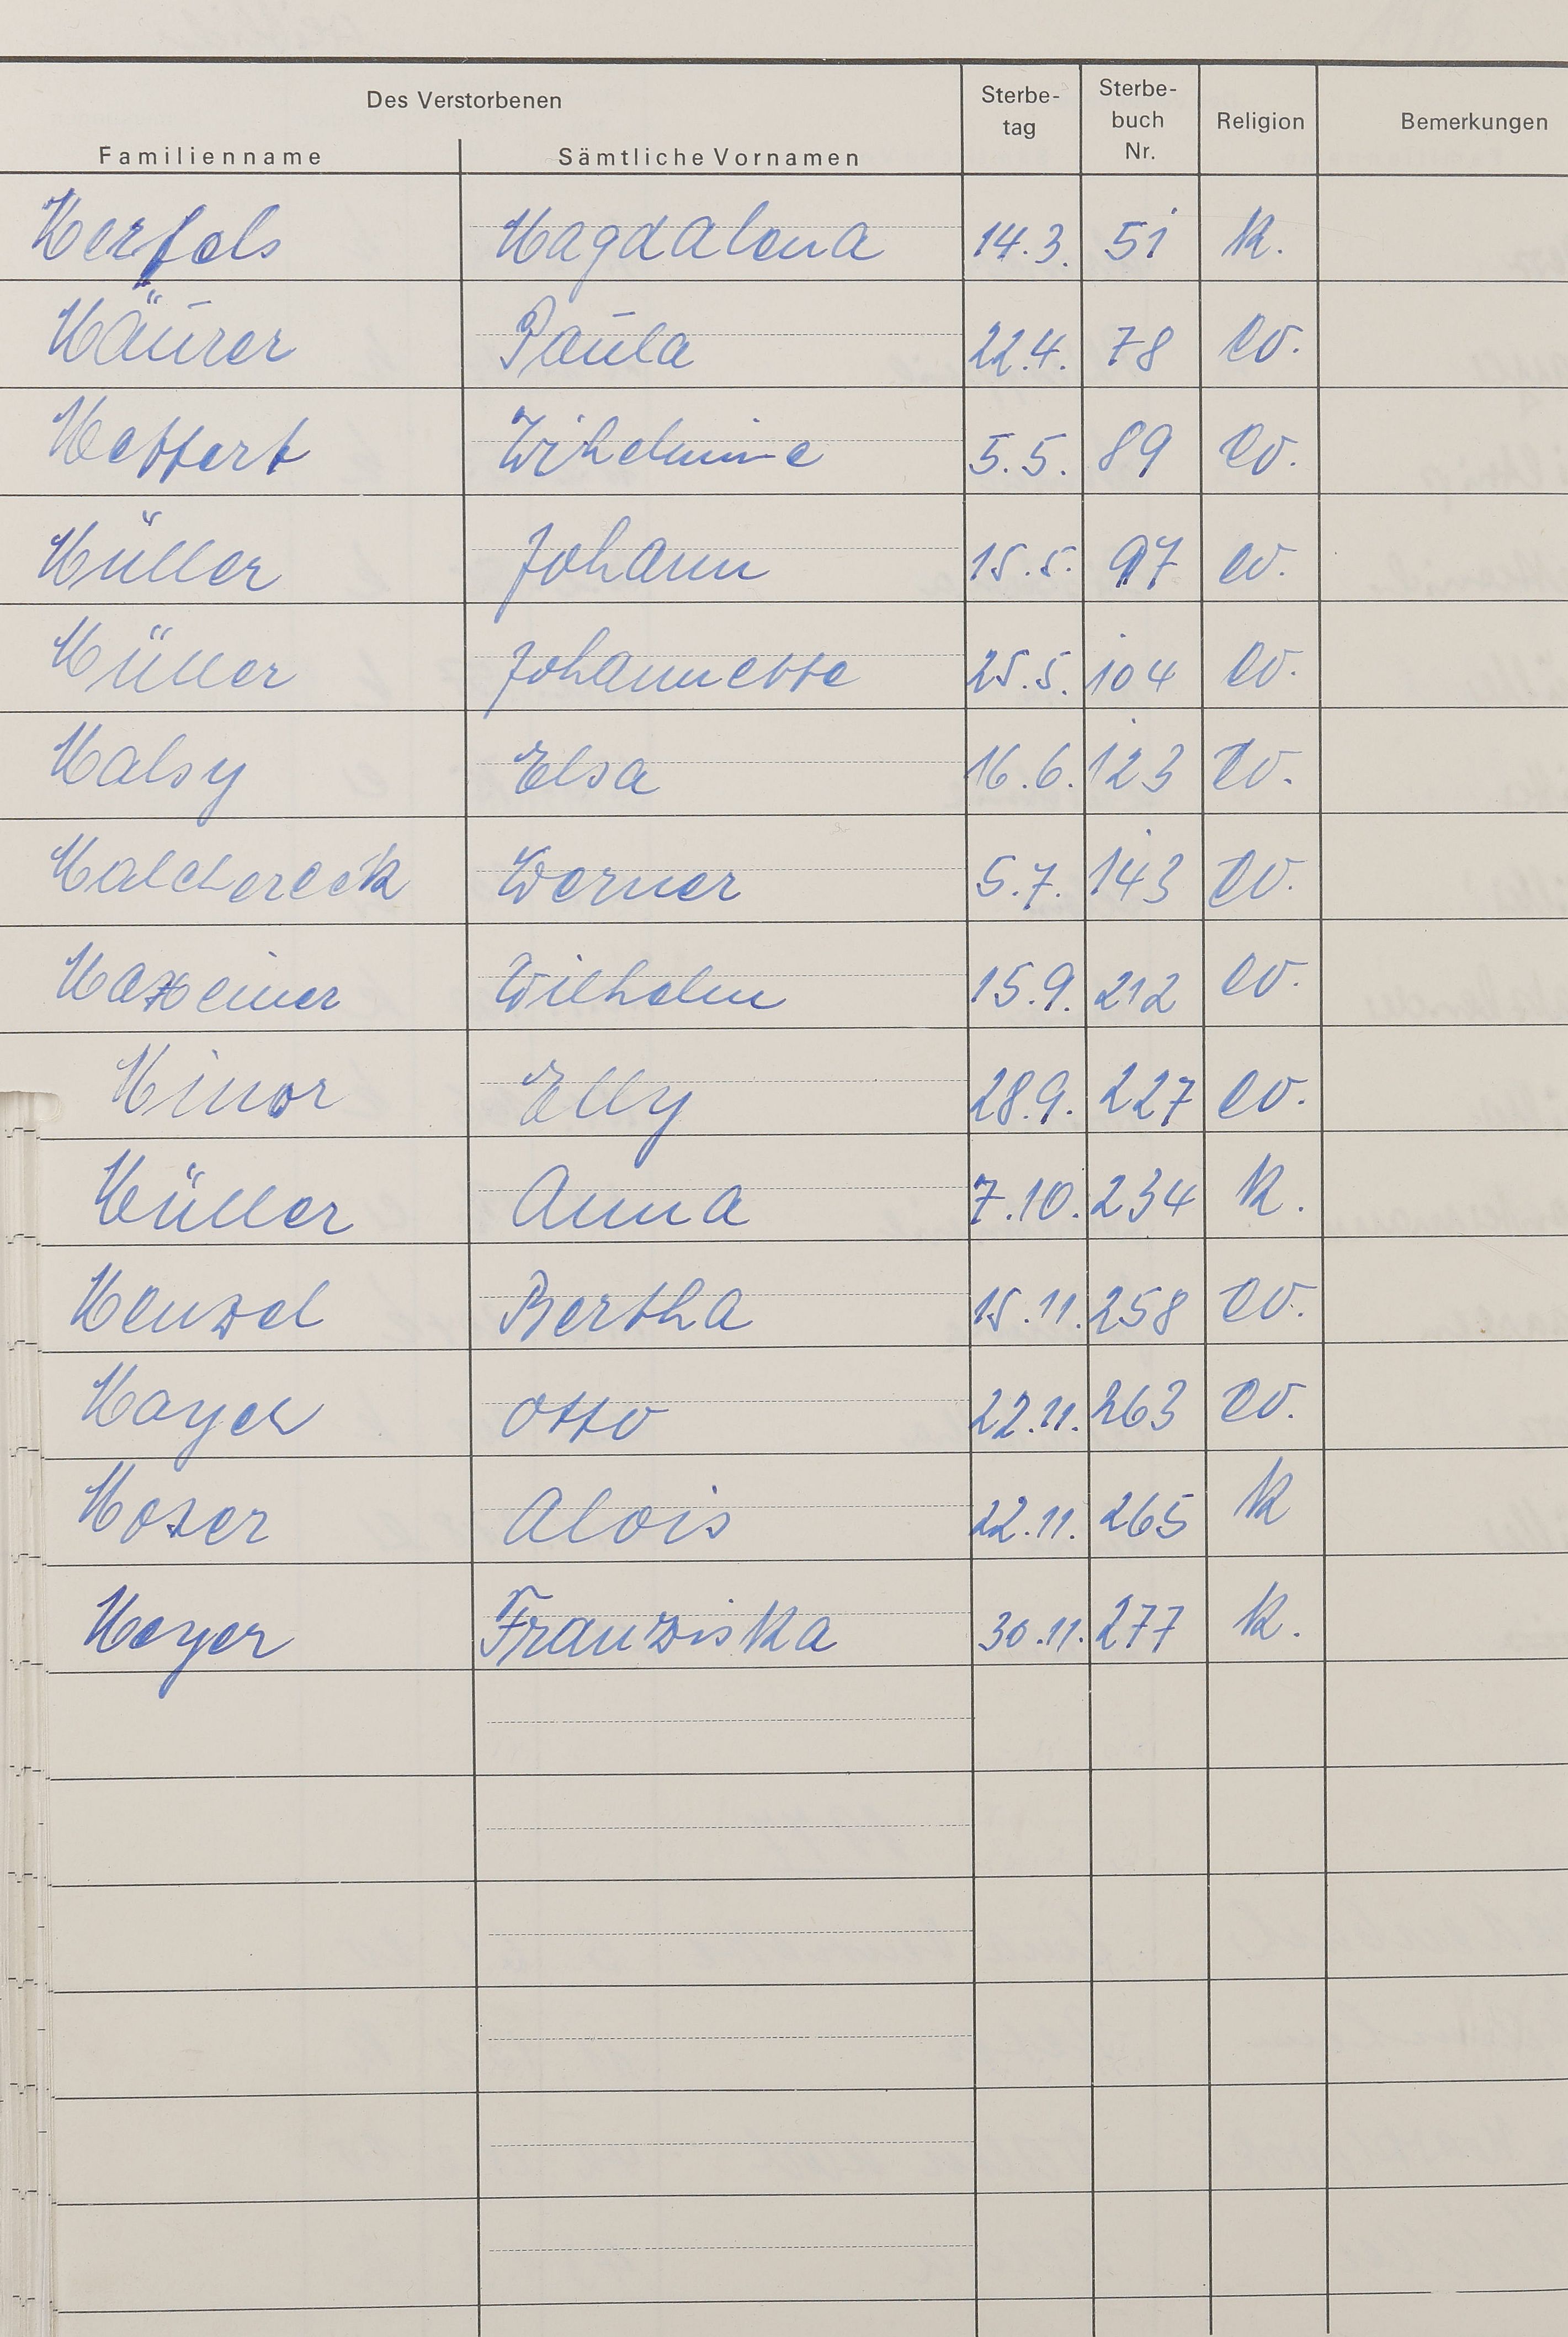 Des Verstorbenen
Familienname Sämtliche Vornamen Sterbe-tag Sterbe-buch Nr. Religion Bemerkungen
Merfels Magdalena 14.3. 51 k.
Mäurer Paula 22.4. 78 ev.
Mettert Wihelmine 5.5. 89 ev.
Müller Johann 15.5. 97 ev.
Müller Johannette 25.5. 104 ev.
Malsy Elsa 16.6. 123 ev.
Malchereck Werner 5.7. 143 ev.
Maxeiner Wilhelm 15.9. 212 ev.
Minor Elly 28.9. 227 ev.
Müller Anna 7.10. 234 k.
Menzel Bertha 15.11. 258 ev.
Mayer Otto 22.11. 263 ev.
Moser Alois 22.11. 265 k
Meyer Franziska 30.11. 277 k.